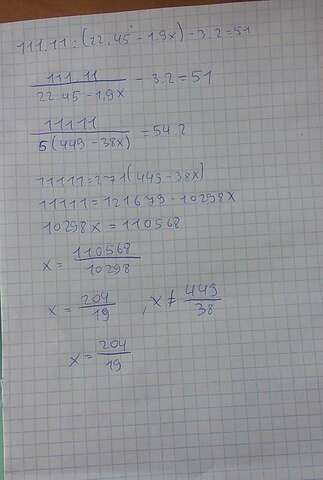 111.11 : (22.45 - 1.9x) - 3.2 = 51
111.11 / 22.45 - 1,9x - 3.2 = 51
11111 / 5(449 - 38x) = 54.2
11111 = 271(449 - 38x)
11111 = 121679 - 10298x
10298x = 110568
x = 110568 / 10298
x = 204 / 19 , x ≠ 449 / 38
x = 204 / 19